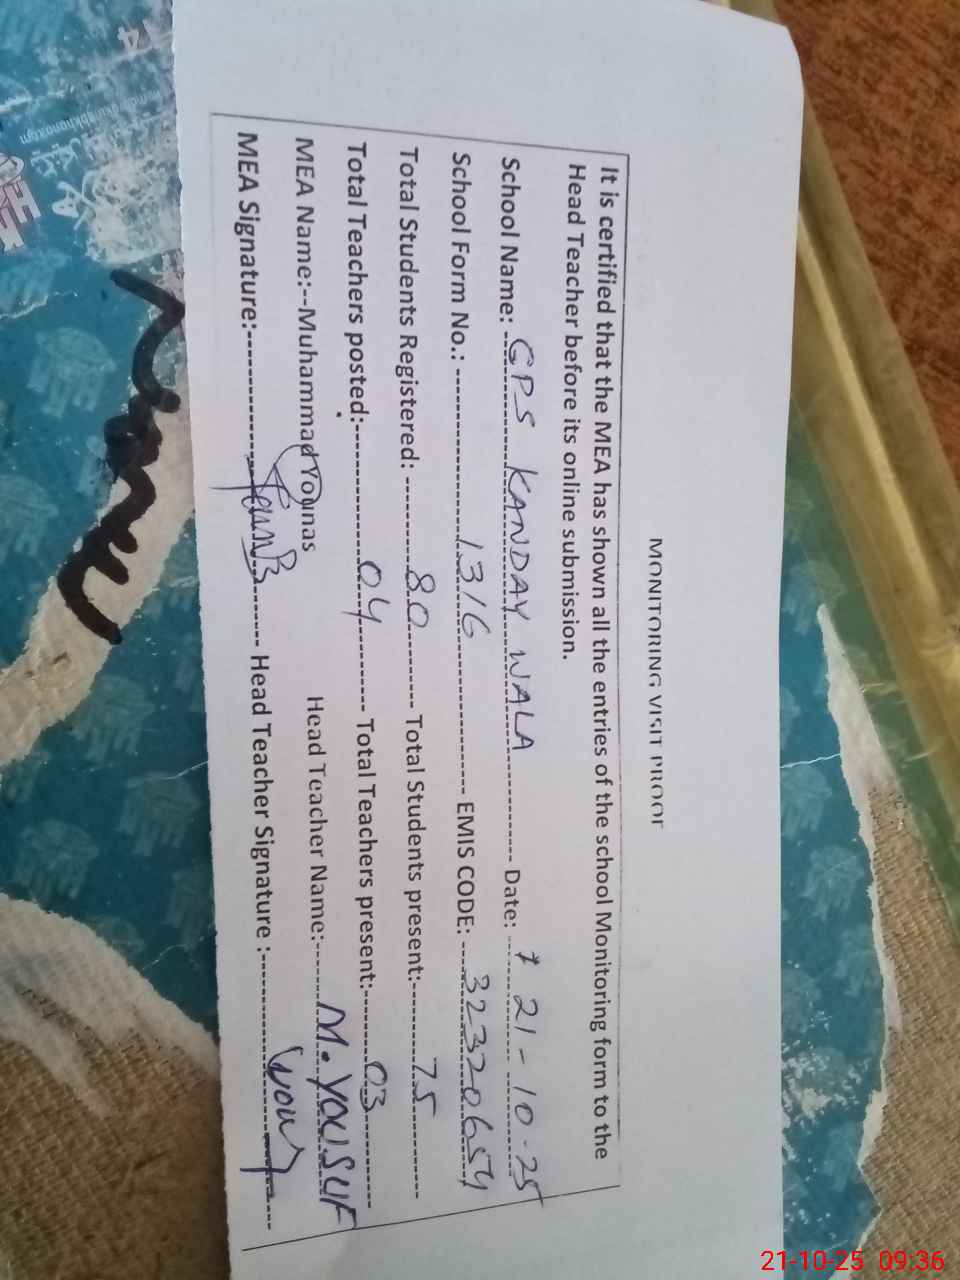 MONITORING VISIT PROOF
It is certified that the MEA has shown all the entries of the school Monitoring form to the
Head Teacher before its online submission.
School Name: GPS KANDAY WALA Date: 21-10-25
School Form No.: 1316 EMIS CODE: 32320654
Total Students Registered: 80 Total Students present:- 75
Total Teachers posted:- 04 Total Teachers present:- 03
MEA Name:--Muhammad Younas Head Teacher Name:- M. YOUSUF
MEA Signature:- Head Teacher Signature :-
21-10-25 09:36